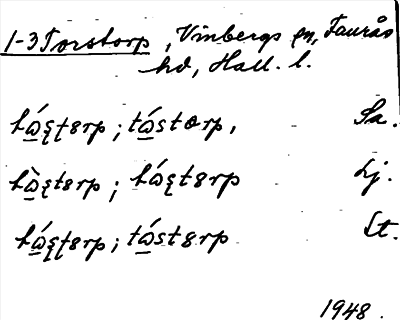 1-3 Torstorp, Vinbergs sn, Faurås
hd, Hall. l.
tώʂʈɛrp; tώstɛrp, Sa.
tὼʂtɛrp; tώʂtɛrp Lj.
tώʂʈɛrp; tώstɛrp Lt.
1948.